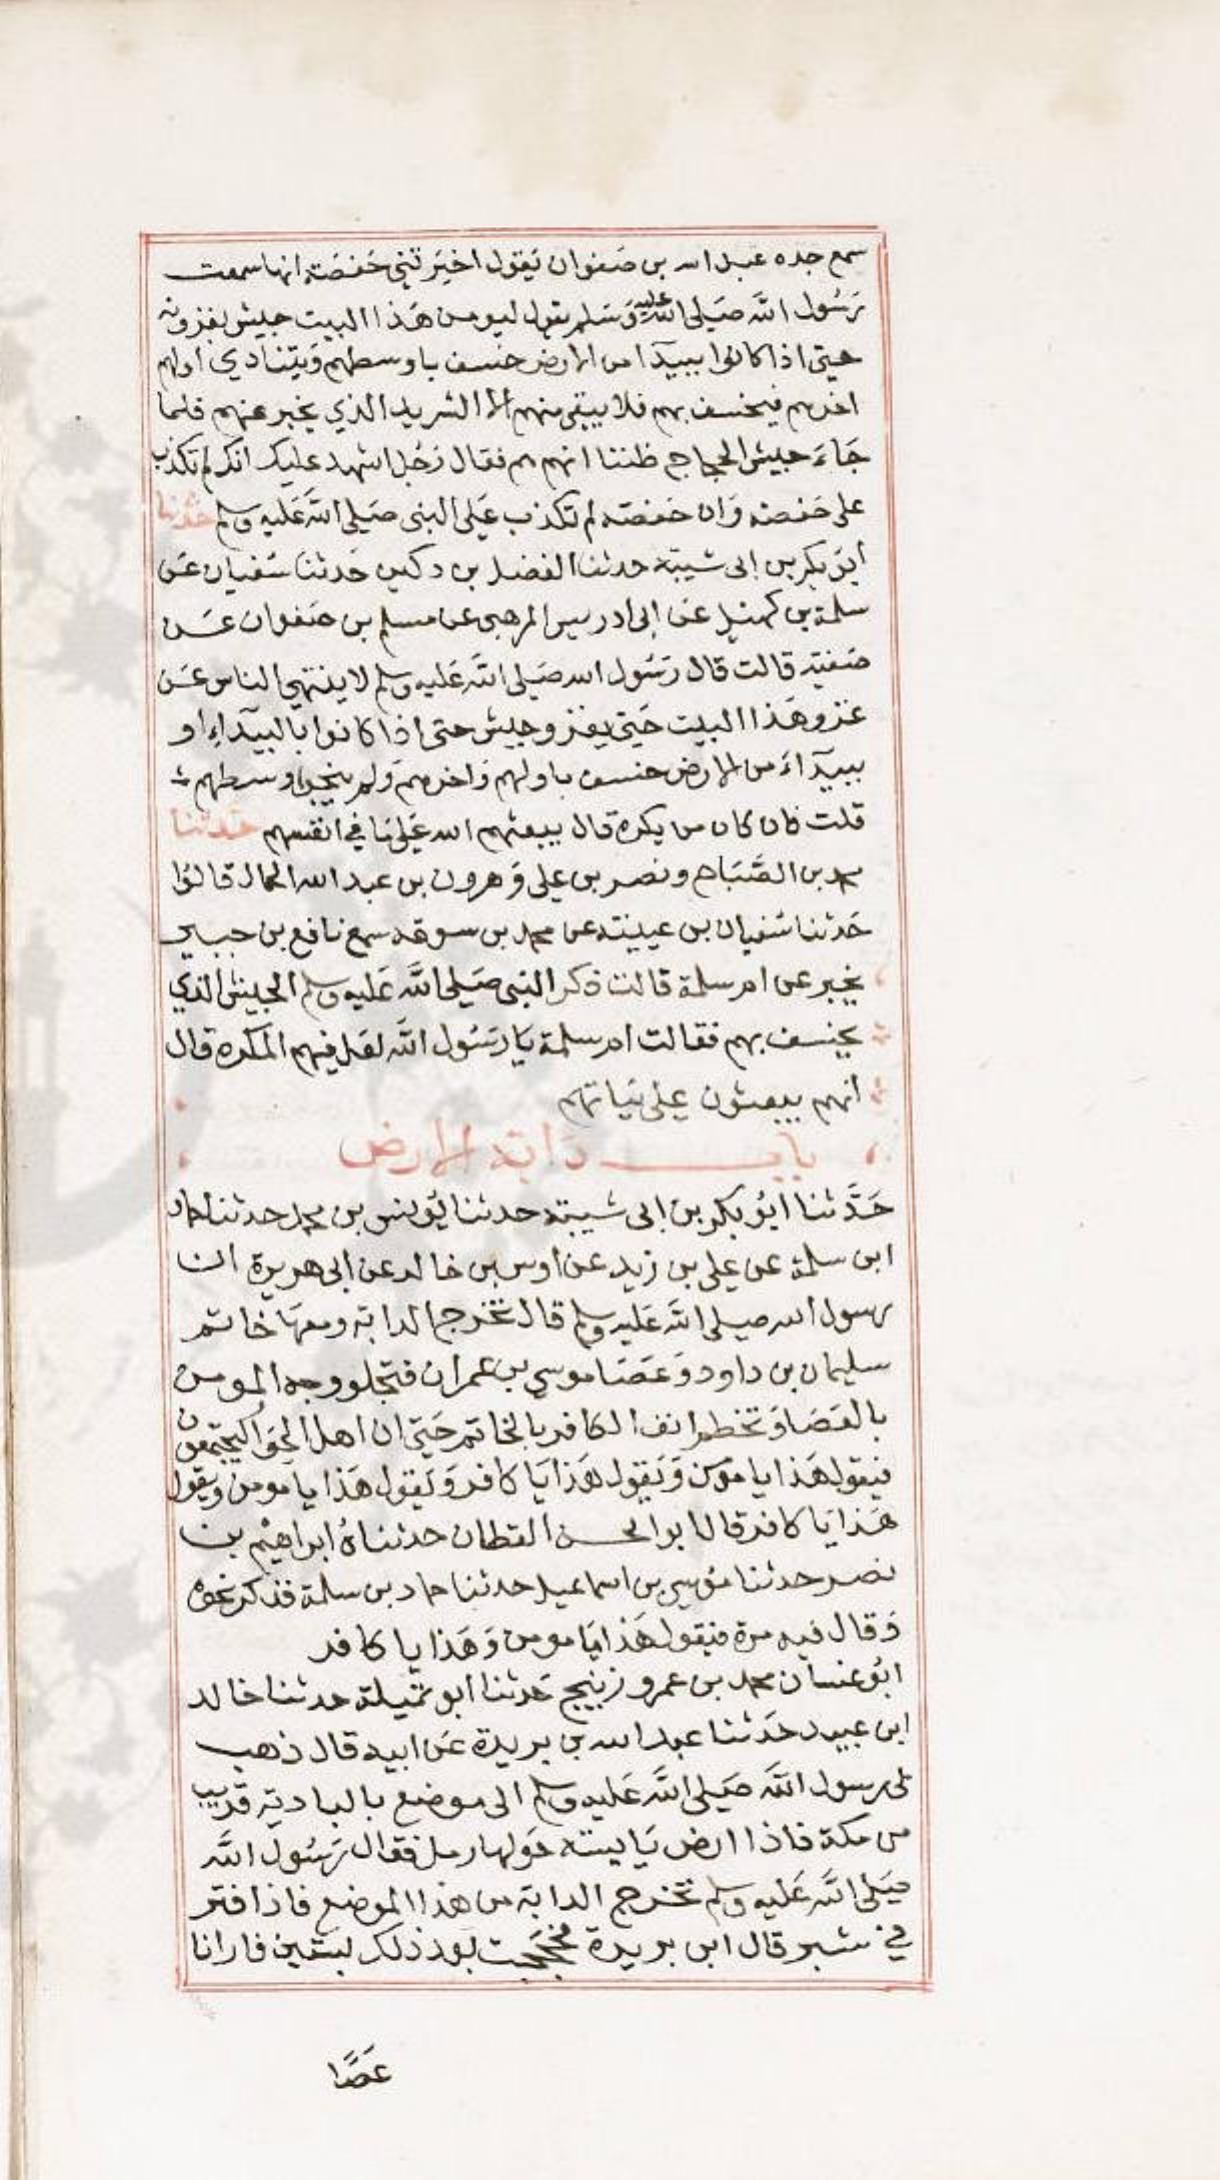 سمع جده عبد الله بن صفوان يقول اخبرتني حفصة انها سمعت
رسول الله صلى الله عليه وسلم يقول ليومن هذا البيت جيش يغزونه
حتى اذا كانوا ببيدا من الارض خسف باوسطهم ويتنادي اولهم
اخرهم فيخسف بهم فلا يبقى منهم الا الشريد الذي يخبر عنهم فلما
جاء جيش الحجاج ظننا انهم هم فقال رجل اشهد عليك انك لم تكذب
على حفصة وان حفصة لم تكذب على النبي صلى الله عليه وسلم حدثنا
ابو بكر بن ابى شيبة حدثنا الفضل بن دكين حدثنا سفيان عن
سلمة بن كهيل عن ابى ادريس المرهبى عن مسلم بن صفوان عن
صفية قالت قال رسول الله صلى الله عليه وسلم لا ينتهي الناس عن
غزو هذا البيت حتى يغزو جيش حتى اذا كانوا بالبيداء او
ببيداء من الارض خسف باولهم واخرهم ولم ينج اوسطهم
قلت فان كان من يكره قال يبعثهم الله على ما في انفسهم حدثنا
محمد بن الصباح ونصر بن علي وهرون بن عبد الله الحمال قالوا
حدثنا سفيان بن عيينة عن محمد بن سوقه سمع نافع بن جبير
يخبر عن ام سلمة قالت ذكر النبى صلى الله عليه وسلم الجيش الذي
يخسف بهم فقالت ام سلمة يا رسول الله لعل فيهم المكره قال
انهم يبعثون على نياتهم
باب دابة الارض
حدثنا ابو بكر بن ابى شيبة حدثنا يونس بن محمد حدثنا حماد
ابن سلمة عن علي بن زيد عن اوس بن خالد عن ابى هريرة ان
رسول الله صلى الله عليه وسلم قال تخرج الدابة ومعها خاتم
سليمان بن داود وعصا موسي بن عمران فتجلو وجه المومن
بالعصا وتخطم انف الكافر بالخاتم حتى ان اهل الحواء ليجتمعون
فيقول هذا يا مومن ويقول هذا يا كافر ويقول هذا يا مومن ويقول
هذا يا كافر قال ابو الحسن القطان حدثناه ابراهيم بن
نصر حدثنا موسى بن اسماعيل حدثنا حماد بن سلمة فذكر نحوه
وقال فيه مرة فيقول هذا يا مومن وهذا يا كافر
ابو غسان محمد بن عمرو زنيج حدثنا ابو تميلة حدثنا خالد
ابن عبيد حدثنا عبد الله بن بريدة عن ابيه قال ذهب
بى رسول الله صلى الله عليه وسلم الى موضع بالبادية قريب
من مكة فاذا ارض يابسة حولها رمل فقال رسول الله
صلى الله عليه وسلم تخرج الدابة من هذا الموضع فاذا فتر
في شبر قال ابن بريدة فحججت بعد ذلك بسنين فارانا
عصًا